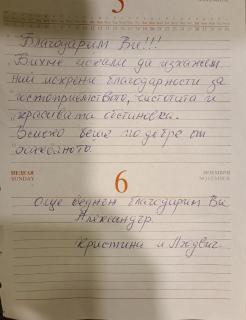 5
Благодарим Ви!!!
Бихме искали да изкажем
най искрени благодарности за
гостоприемството, чистота и
красивата обстановка.
Всичко беше по добре от
очакваното.
НЕДЕЛЯ
SUNDAY
6
НОЕМВРИ
NOVEMBER
Още веднъж благодарим Ви
Александър.
Кристина и Людвиг.